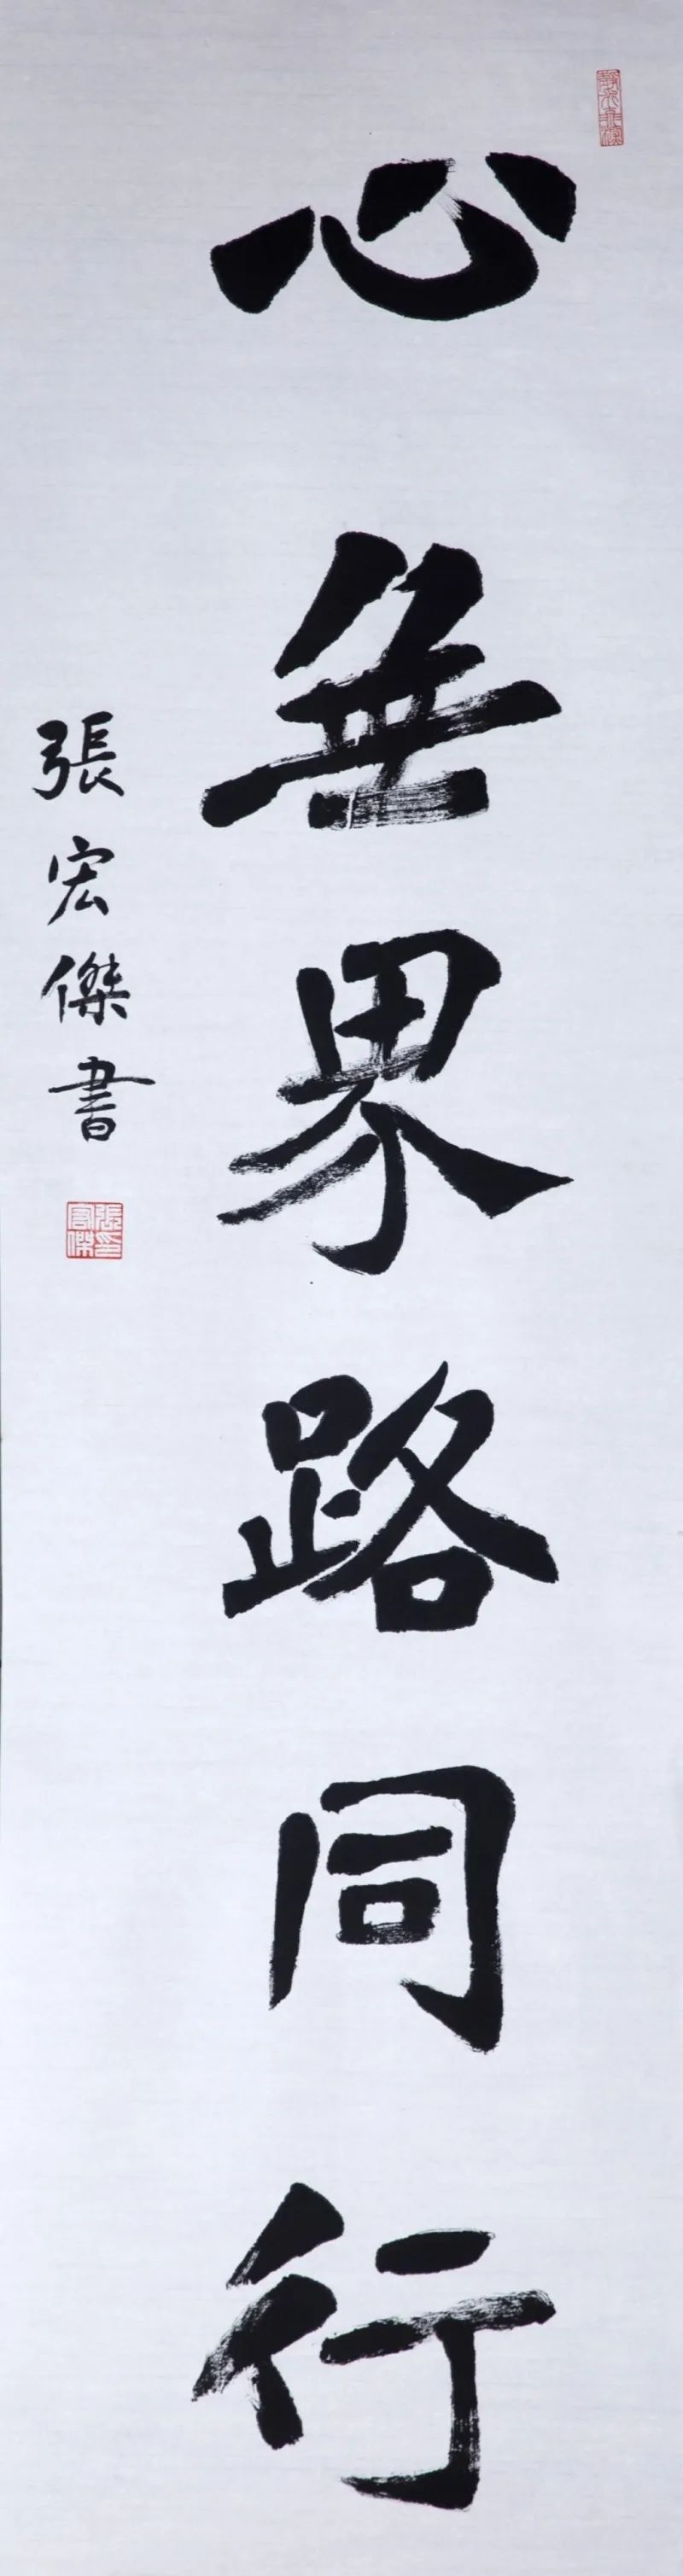 心無界路同行
張宏傑書
張宏傑印